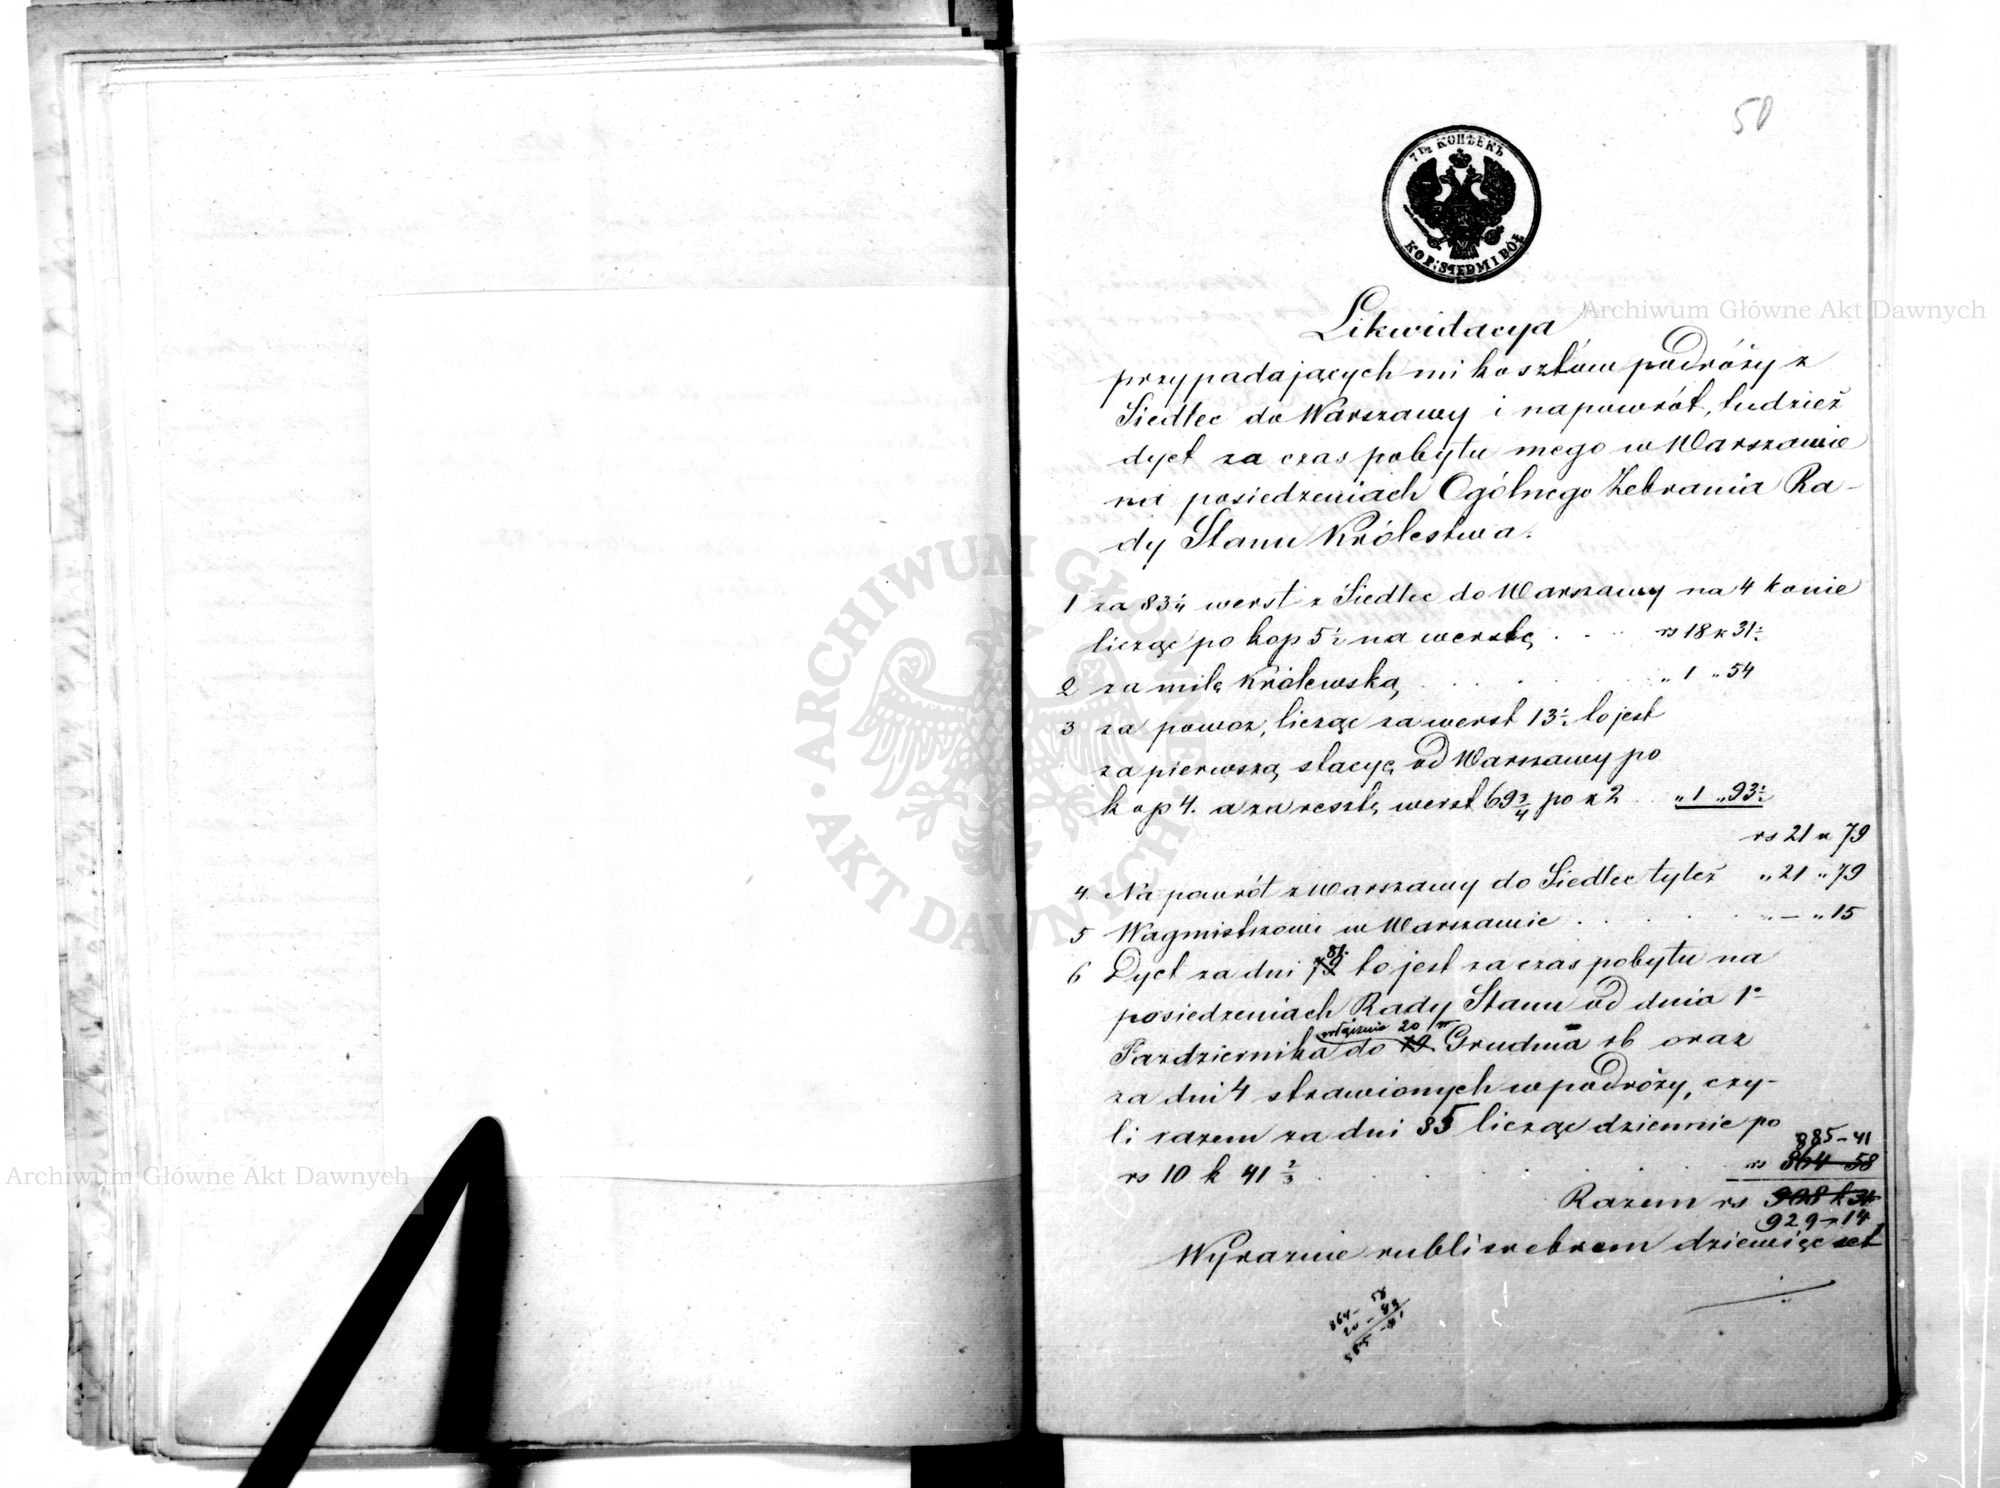 50
7 1/2 КОПѢЕКЪ
KOP: SIEDM I PÓŁ
Likwidacya
przypadających mi kosztów podróży z
Siedlec do Warszawy i napowrót, tudzież
dyet za czas pobytu mego w Warszawie
na posiedzeniach Ogólnego Zebrania Ra-
dy Stanu Królestwa.
1 za 83 1/4 werst z Siedlec do Warszawy na 4 konie
licząc po kop 5 1/2 na werstę . . . rs 18 k 31 1/2
2 za milę Królewską . . . . . „ 1 „ 54
3 za powoz, licząc za werst 13 1/2 to jest
za pierwszą stacyę od Warszawy po
kop 4. a za resztę werst 69 3/4 po k 2 . „ 1 „ 93 1/2
rs 21 k 79
4. Na powrót z Warszawy do Siedlec tyleż „ 21 „ 79
5 Wagmistrzowi w Warszawie . . . . . „ — „ 15
81.
6 Dyet za dni 79 to jest za czas pobytu na
posiedzeniach Rady Stanu od dnia 1o
włącznie 20
Pazdziernika do 19 Grudnia rb oraz
za dni 4 strawionych w podróży, czy-
li razem za dni 85 licząc dziennie po
885-41
rs 10 k 41 2/3 . . . . . rs 864 58
Razem rs 908 k 31
929-14
Wyraznie rubli srebrem dziewięćset
864- 58
20 - 83
885 - 41
Archiwum Główne Akt Dawnych
Archiwum Główne Akt Dawnych
ARCHIWUM GŁÓWNE AKT DAWNYCH